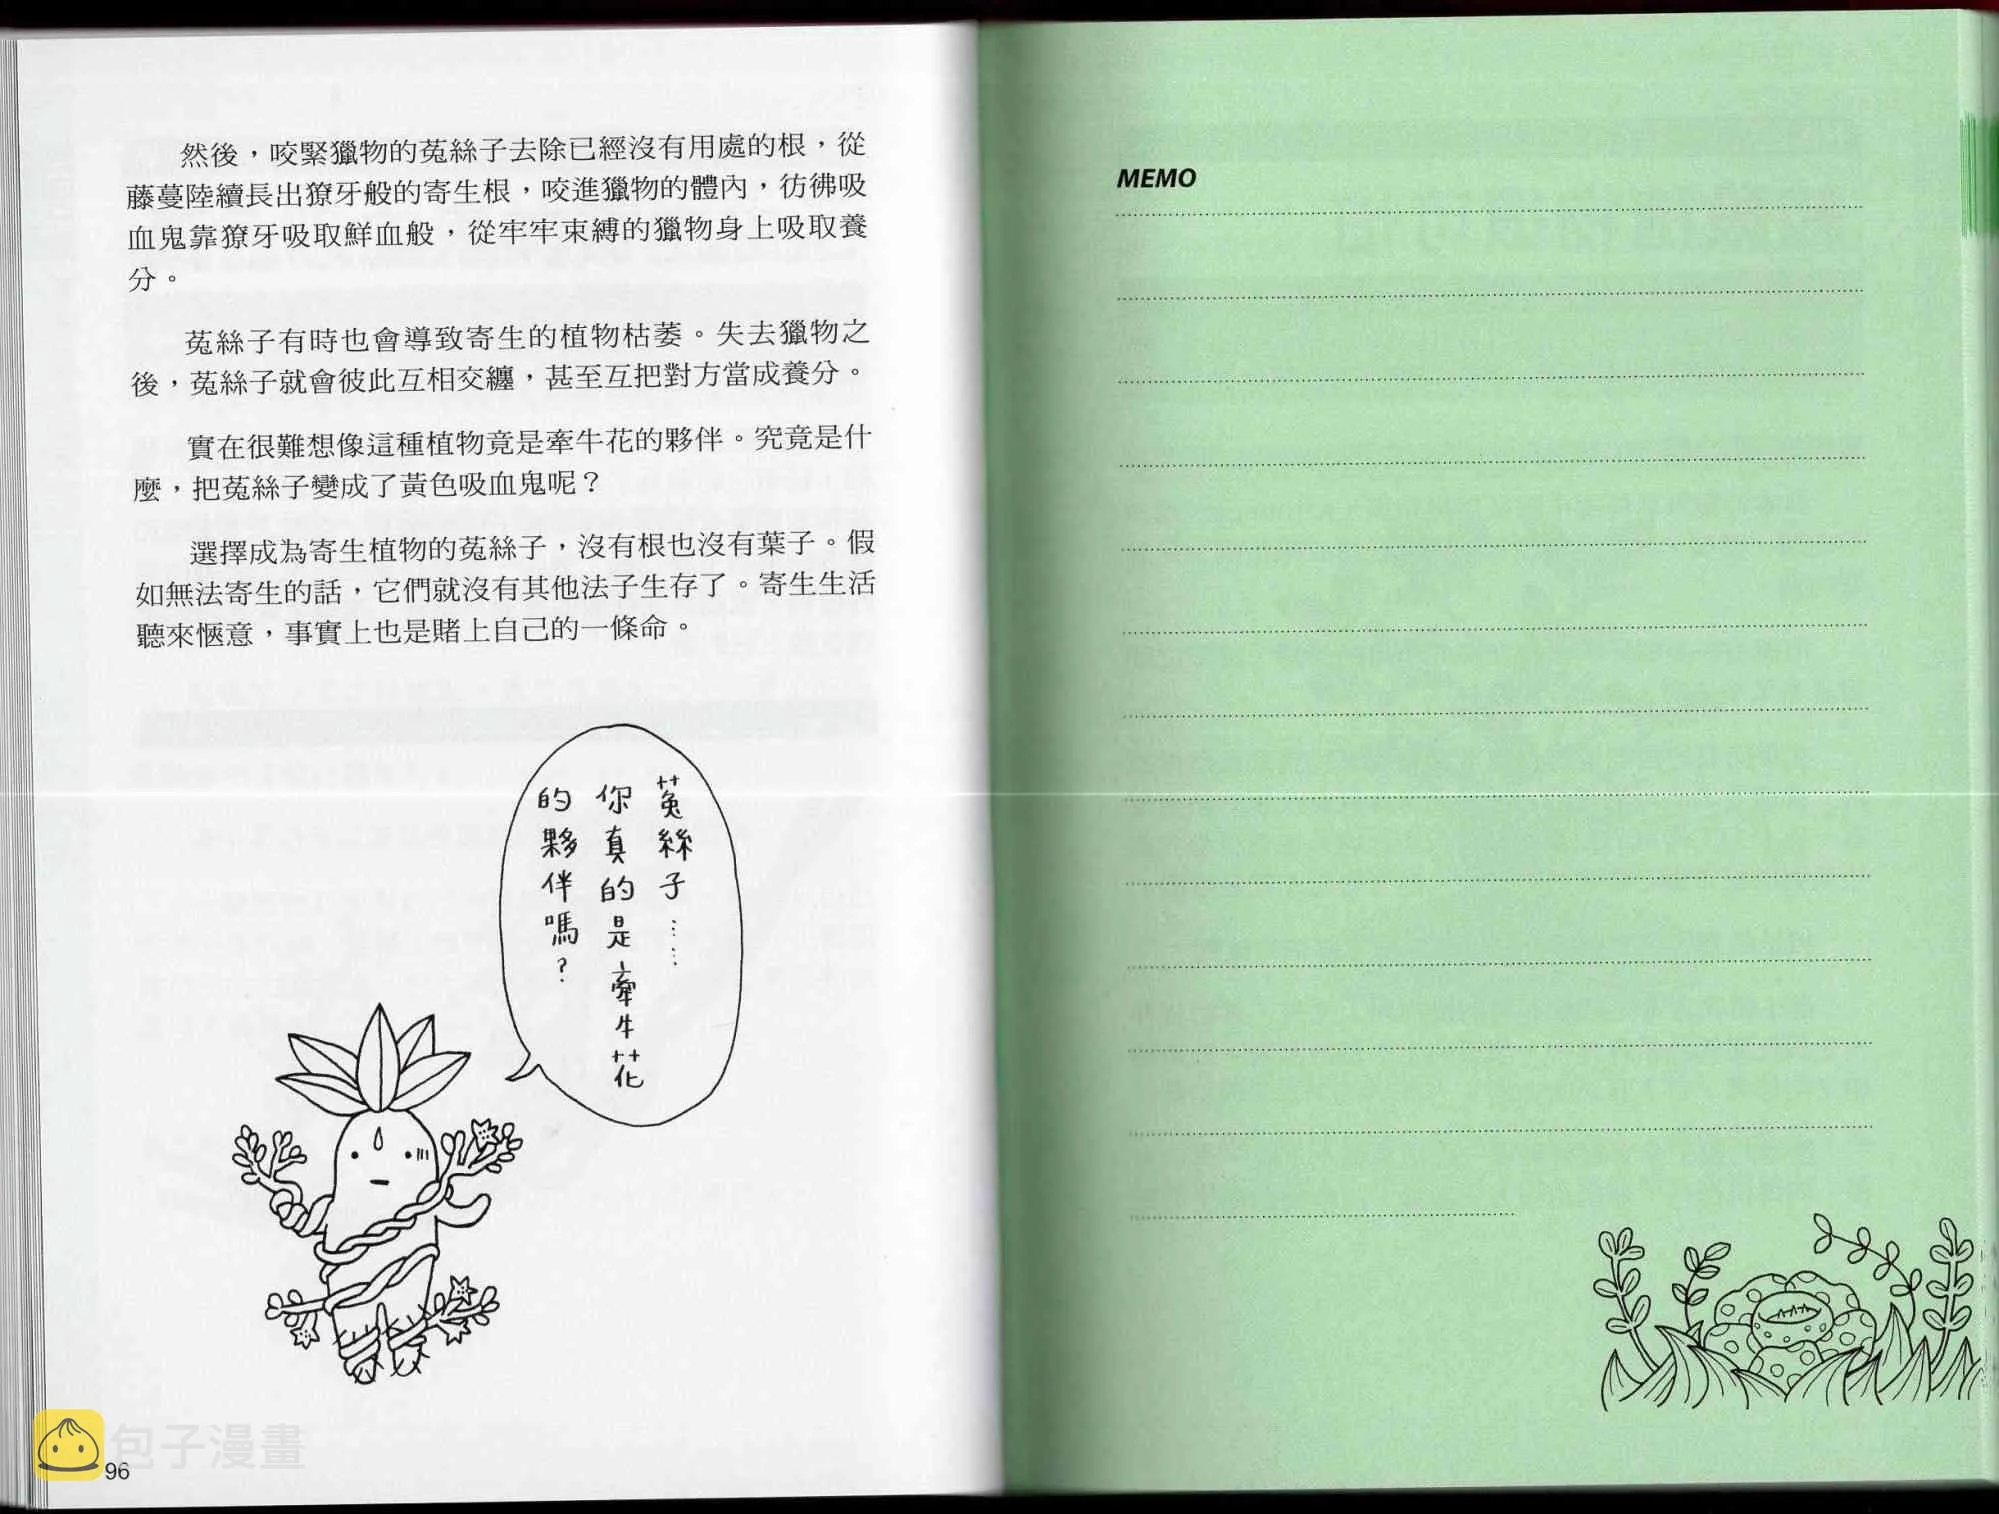 然後，咬緊獵物的菟絲子去除已經沒有用處的根，從
藤蔓陸續長出獠牙般的寄生根，咬進獵物的體內，彷彿吸
血鬼靠獠牙吸取鮮血般，從牢牢束縛的獵物身上吸取養
分。
菟絲子有時也會導致寄生的植物枯萎。失去獵物之
後，菟絲子就會彼此互相交纏，甚至互把對方當成養分。
實在很難想像這種植物竟是牽牛花的夥伴。究竟是什
麼，把菟絲子變成了黃色吸血鬼呢？
選擇成為寄生植物的菟絲子，沒有根也沒有葉子。假
如無法寄生的話，它們就沒有其他法子生存了。寄生生活
聽來愜意，事實上也是賭上自己的一條命。
菟絲子……
你真的是牽牛花
的夥伴嗎？
包子漫畫
96
MEMO